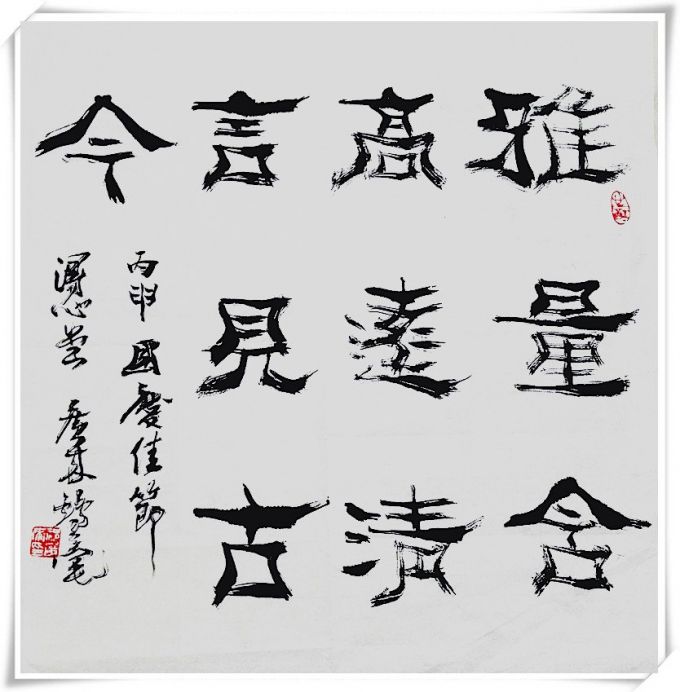 雅量含
高遠清
言見古
今
丙申国慶佳節
心堂